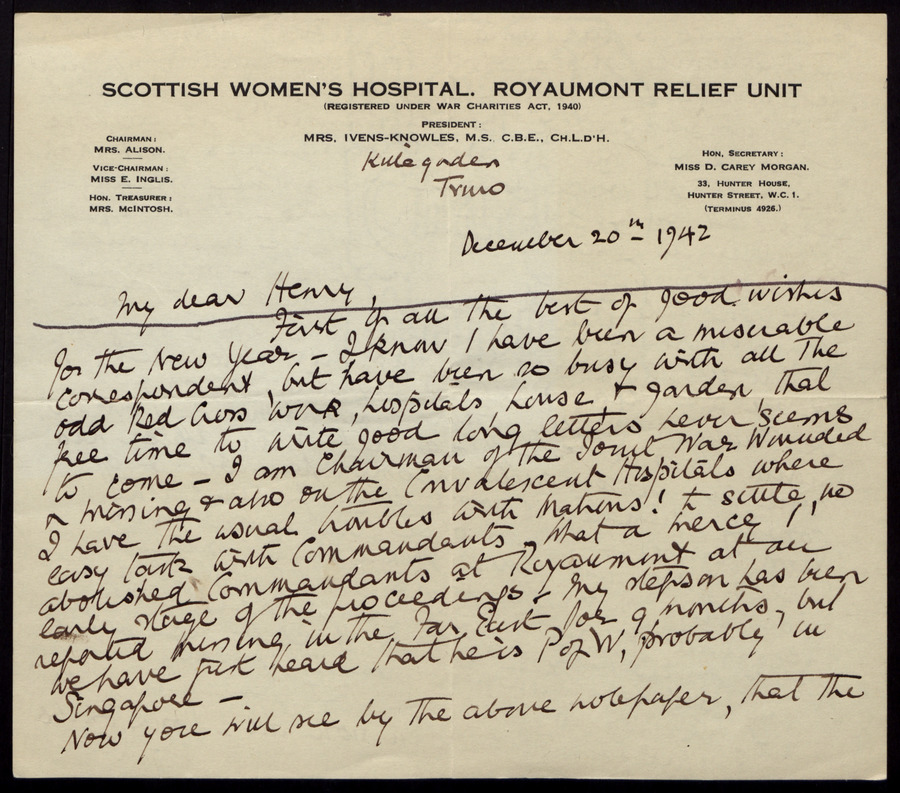 SCOTTISH WOMEN'S HOSPITAL. ROYAUMONT RELIEF UNIT
(REGISTERED UNDER WAR CHARITIES ACT, 1940)
PRESIDENT:
MRS. IVENS-KNOWLES, M.S. C.B.E., CH.L.D'H.
CHAIRMAN:
MRS. ALISON.
VICE-CHAIRMAN:
MISS E. INGLIS.
HON. TREASURER:
MRS. McINTOSH.
HON. SECRETARY:
MISS D. CAREY MORGAN.
33, HUNTER HOUSE,
HUNTER STREET, W.C.1.
(TERMINUS 4926.)
Truro
December 20th 1942
My dear Henry,
First of all the best of good wishes
for the New Year – I know I have been a miserable
correspondent, but have been so busy with all the
odd Red Cross work, hospitals, house & garden, that
free time to write good long letters never seems
to come – I am Chairman of the Joint War Wounded
& missing & also on the Convalescent Hospitals where
I have the usual troubles with Matrons! to settle, no
easy task with Commandants – What a mercy I
abolished Commandants at Royaumont at an
early stage of the proceedings – My stepson has been
reported missing in the Far East for 9 months, but
we have just heard that he is P of W, probably in
Singapore –
Now you will see by the above notepaper, that the